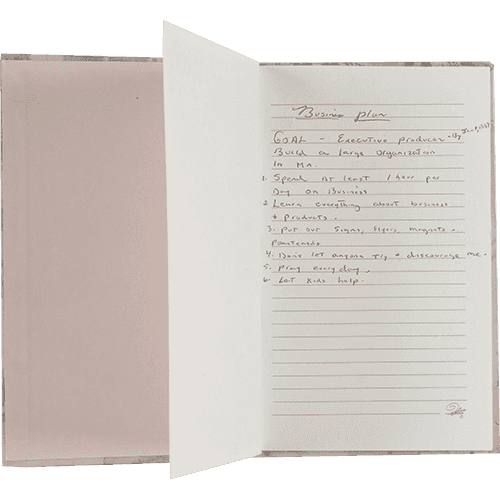 Business plan
GOAL - Executive producer - By Jan 1,
Build a large organization
in MA.
1. Spend at least 1 hour per
Day on Business
2. Learn everything about business
+ products.
3. Put out signs, flyers, magnets
4. Don't let anyone try + discourage me.
5. Pray everyday.
6. Let kids help.